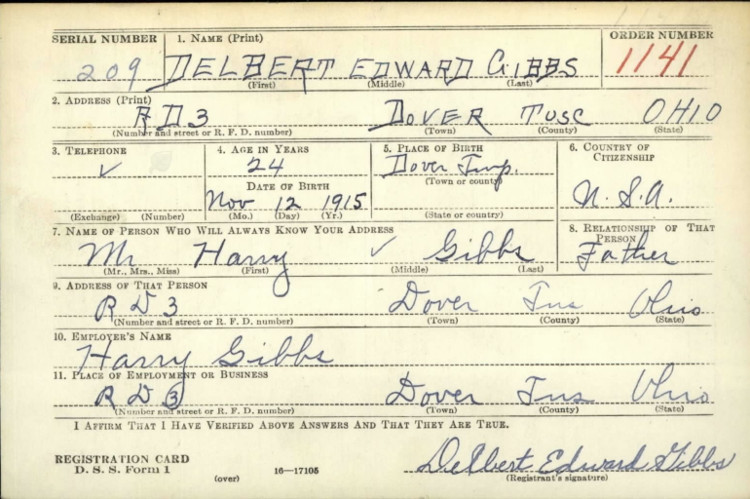 SERIAL NUMBER 1. NAME (Print) ORDER NUMBER
209 DELBERT EDWARD GIBBS 1141
(First) (Middle) (Last)
2. ADDRESS (Print)
R D 3 DOVER TUSC OHIO
(Number and street or R. F. D. number) (Town) (County) (State)
3. TELEPHONE 4. AGE IN YEARS 5. PLACE OF BIRTH 6. COUNTRY OF CITIZENSHIP
✓ 24 Dover Twp.
DATE OF BIRTH (Town or county)
Nov 12 1915 U.S.A.
(Exchange) (Number) (Mo.) (Day) (Yr.) (State or country)
7. NAME OF PERSON WHO WILL ALWAYS KNOW YOUR ADDRESS 8. RELATIONSHIP OF THAT PERSON
Mr Harry ✓ Gibbs Father
(Mr., Mrs., Miss) (First) (Middle) (Last)
9. ADDRESS OF THAT PERSON
R D 3 Dover Tus Ohio
(Number and street or R. F. D. number) (Town) (County) (State)
10. EMPLOYER'S NAME
Harry Gibbs
11. PLACE OF EMPLOYMENT OR BUSINESS
R D 3 Dover Tus Ohio
(Number and street or R. F. D. number) (Town) (County) (State)
I AFFIRM THAT I HAVE VERIFIED ABOVE ANSWERS AND THAT THEY ARE TRUE.
REGISTRATION CARD Delbert Edward Gibbs
D. S. S. Form 1 (over) 16—17105 (Registrant's signature)